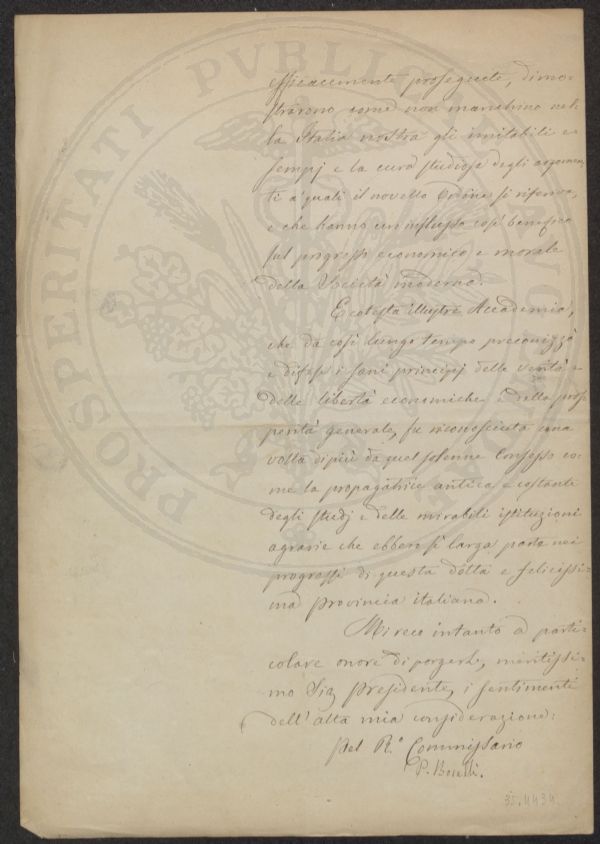 efficacemente proseguite, dimo-
strarono come non manchino nel-
la Italia nostra gli imitabili e-
sempj e la cura studiosa degli argomen-
ti a' quali il novello Ordine si riferiva,
e che hanno un influsso così benefico
sul progresso economico e morale
della Società moderna.
E cotesta illustre Accademia,
che da così lungo tempo preconizzò
e difese i sani principj della verità e
delle libertà economiche e della pros-
perità generale, fu riconosciuta una
volta di più da quel solenne Consesso co-
me la propagatrice antica e costante
degli studj e delle mirabili istituzioni
agrarie che ebbero sì larga parte nei
progressi di questa dotta e felicissi-
ma provincia italiana.
Mi reco intanto a parti-
colare onore di porgerle, meritissi-
mo Sig. Presidente, i sentimenti
dell'alta mia considerazione:
Pel R.º Commissario
P. Boselli.
35.4434
PROSPERITATI PVBLICAE